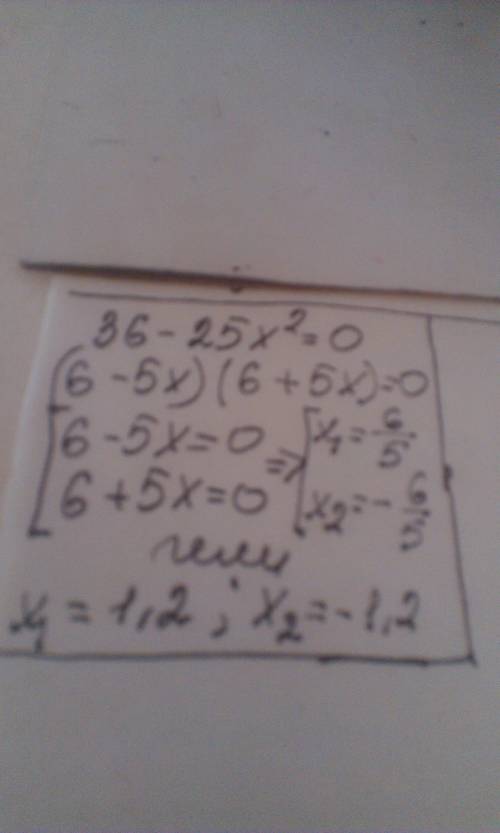 36 - 25x² = 0
(6 - 5x)(6 + 5x) = 0
[6 - 5x = 0 => [x₁ = 6/5
[6 + 5x = 0 [x₂ = - 6/5
или
x₁ = 1,2 ; x₂ = -1,2